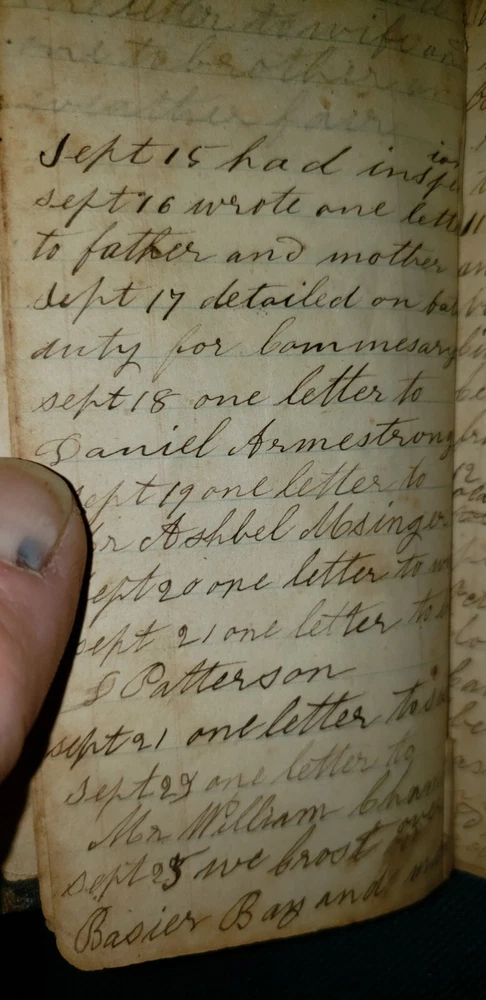 one letter to wife and
one to brother
weather fair
Sept 15 had insp
ion
sept 16 wrote one lette
to father and mother
Sept 17 detailed on
duty for Commesary
sept 18 one letter to
Daniel Armestrong
sept 19 one letter to
Ashbel Msinger
sept 20 one letter to
sept 21 one letter to
Patterson
sept 21 one letter to
sept one letter to
Mr William
sept we crost over
Basier Bay and